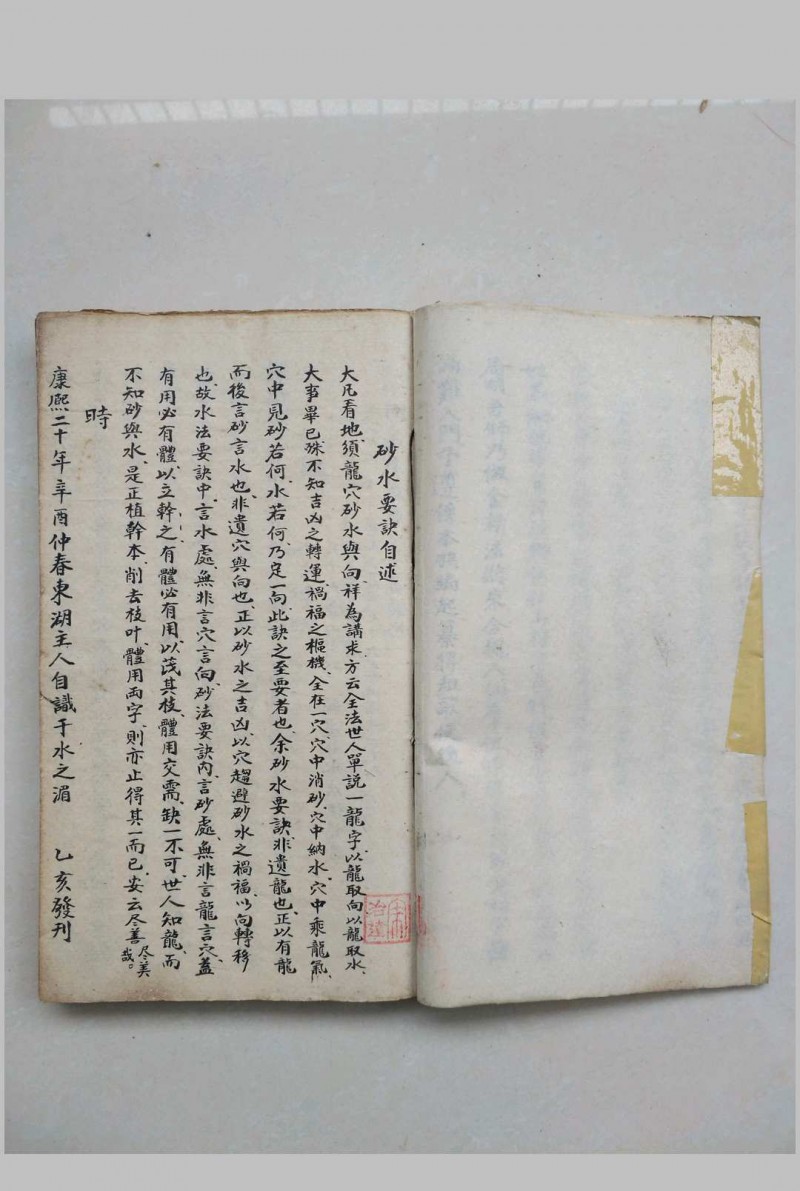 砂水要訣自述
大凡看地、須龍穴砂水與向、祥為講求、方云全法、世人單説一龍字、以龍取向、以龍取水、
大事畢已、殊不知吉凶之轉運、禍福之樞機、全在一穴、穴中消砂、穴中納水、穴中乘龍氣、
穴中見砂若何、水若何、乃定一向、此訣之至要者也、余砂水要訣、非遺龍也、正以有龍
而後言砂言水也、非遺穴與向也、正以砂水之吉凶、以穴趨避、砂水之禍福、以向轉移
也、故水法要訣中、言水處、無非言穴言向、砂法要訣內、言砂處、無非言龍言穴、蓋
有用必有體、以立幹之、有體必有用、以茂其枝、體用交需、缺一不可、世人知龍、而
不知砂與水、是正植幹本、削去枝叶、體用両字、則亦止得其一而已、安云尽善尽美哉。
時
康熙二十年辛酉仲春東湖主人自識于水之湄 乙亥發刊
治達